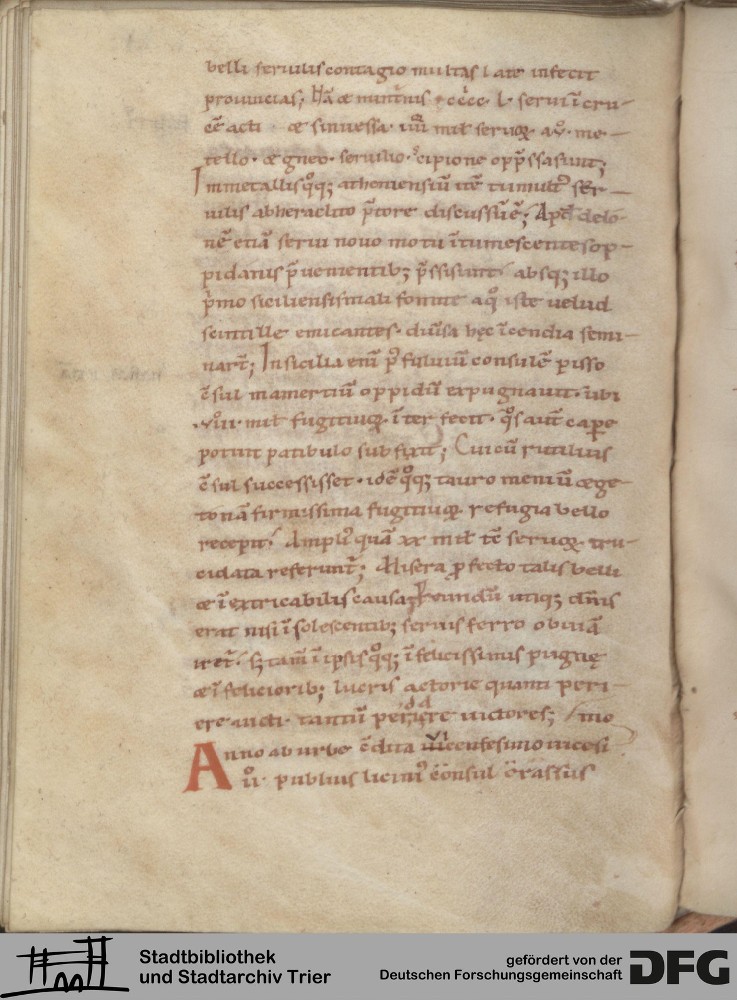 belli seruilis contagio multas late infecit
prouincias; Nā & minturnis ·ccccͨ· l· serui ī cru-
cē acti · & sinuessa · iiii mil seruoꝝ · a q · me-
tello · & gneo · seruilio · scipione opp̄ssi sunt;
In metallis qͦq; atheniensiū itē tumultꝰ ser-
uilis ab heraclito p̄tore discussꝰ ē; Apud delō
nē etiā serui nouo motu ītumescentes op-
pidanis p̄uenientib; p̄ssi sunt absq; illo
pͥmo siciliensis mali fomite a qͦ iste uelud
scintille emicantes · diuͥsa hęc īcendia semi-
nart̄; In sicilia enī pͥ fuluiū consulē pisso
c̄sul mamertiū oppidū expugnauit · ubi
·viii· mil fugitiuoꝝ · īterfecit · qͦs aut̄ cape
potuit patibulo suffixit; Cui cū rutilius
c̄sul successisset · idē qͦq; tauromeniū & ge-
tonā firmissima fugitiuoꝝ refugia bello
recepit · Ampliꝰ quā xx mil tc̄ seruoꝝ · tru-
cidata referunt̄; Misera ꝓfecto talis belli
& īextricabilis causa pereundū utiq; dn̄is
erat nisi īsolescentib; seruis ferro obuiā
iret̄ · Sꝫ tam̄ ī ipsis qͦq; īfelicissimis pugnę
& īfeliciorib; lucris uictorię quanti peri-
ere uicti · tantū perdidere uictores;
Anno ab urbe c̄dita vi centesimo uicesi mo
iiͦ · publius liciniꝰ consul crassus
Stadtbibliothek
und Stadtarchiv Trier
gefördert von der
Deutschen Forschungsgemeinschaft
DFG